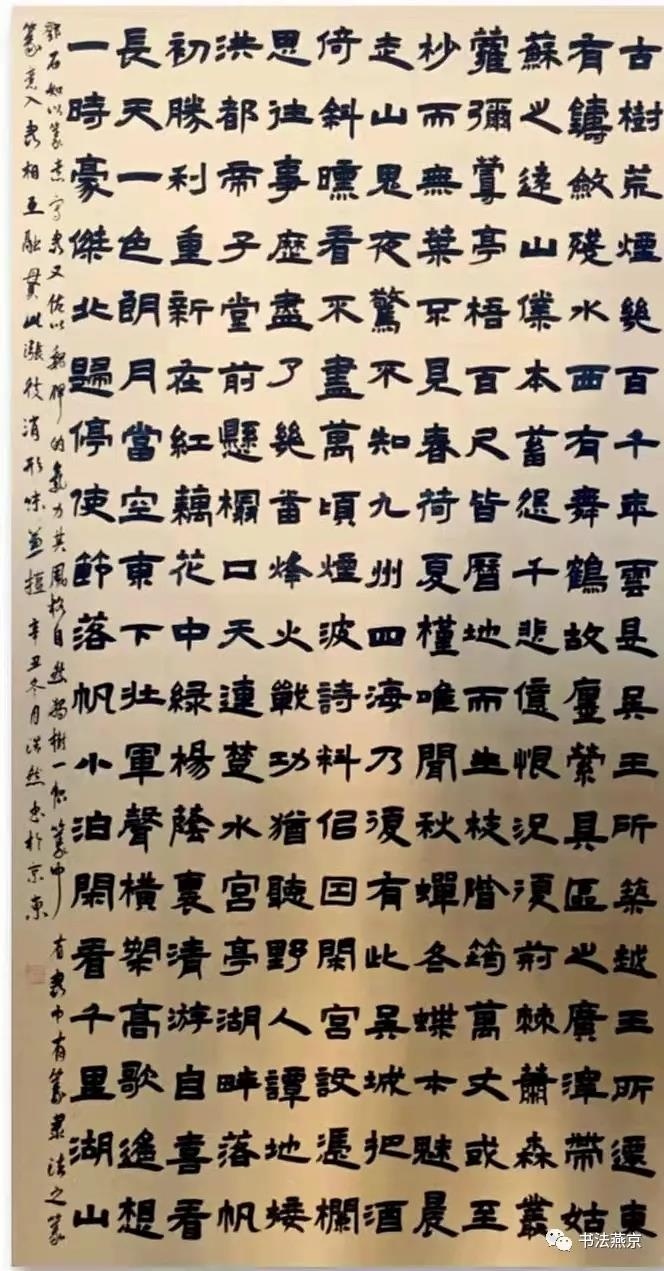 古樹荒煙幾百千年雲是吳王所築越王所還東
有鑄斂殘水西有舞鶴故廛縈具區之廣澤帶姑
蘇之遠山僕本蓄怨千悲億恨況復荊棘蕭森叢
蘿彌蔓亭梧百尺皆曆地而生枝階筠萬丈或至
杪而無葉不見春荷夏槿唯聞秋蟬冬蝶木魅晨
走山鬼夜驚不知九州四海乃復有此吳城把酒
倚斜曛看不盡萬頃煙波詩料侶因閑宮設憑欄
思往事歷盡了幾番烽火戰功猶聽野人譚地矮
洪都帝子堂前懸榻口天連楚水宮亭湖畔落帆
初勝利重新在紅藕花中綠楊蔭裏清游自喜看
長天一色朗月當空東下壯軍聲橫槊高歌遙想
一時豪傑北歸停使節落帆小泊閑看千里湖山
鄧石如以篆意寫隸又佐以魏碑的氣力其風格自然獨樹一幟篆中有隸中有篆隸法之篆
篆意入隸相互融貫此漲彼消形味兼擅辛丑冬月浩然書於京東
书法燕京